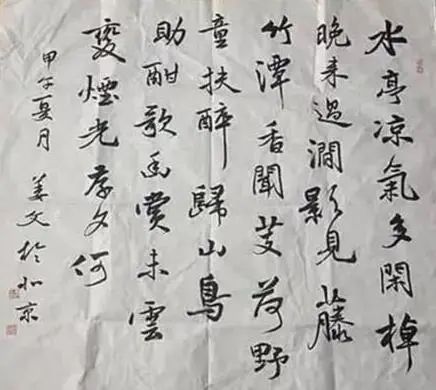 水亭凉氣多閑棹
晚来過澗影見藤
竹潭香聞芰荷野
童扶醉歸山鳥
助酣歌幽賞未雲
變煙光奈夕何
甲午夏月 姜文於北京